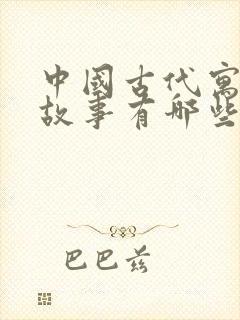 中國古代寓
故事有哪些
巴巴兹